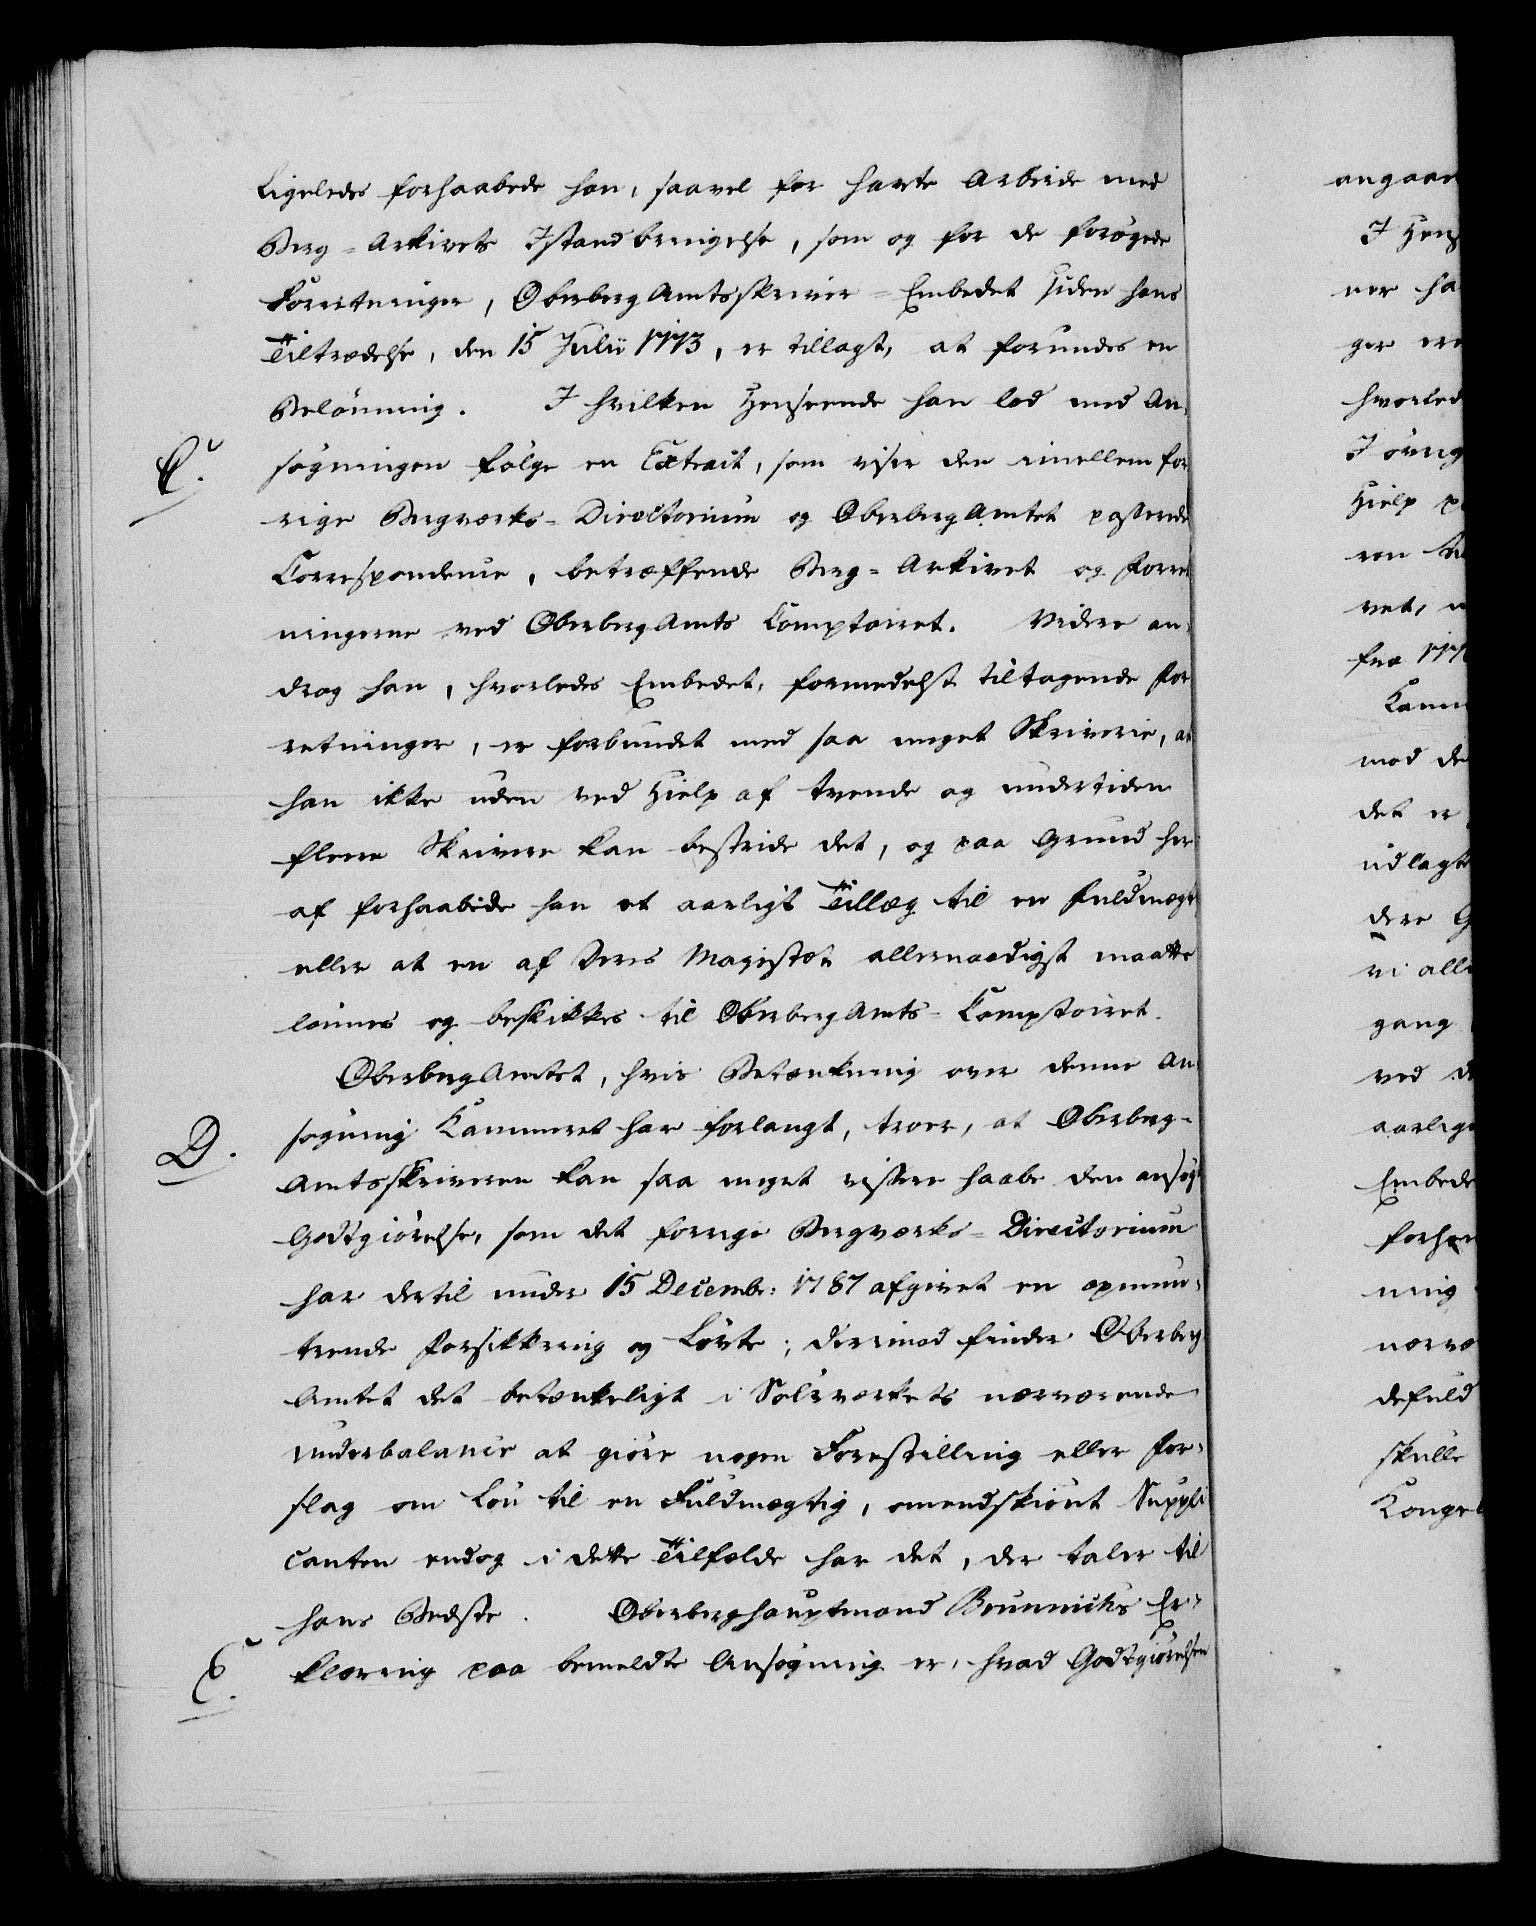 Ligeledes forhaabede han, saavel for havte Arbeide med
Berg-Arkivets Istandbringelse, som og for de forøgede
Forretninger, OberbergAmtsskriver-Embedet siden hans
Tiltrædelse, den 15 Julii 1773, er tillagt, at forundes en
Belønning. I hvilken Henseende han lod med An-
C.
søgningen følge en Extract, som viser den imellem for
rige Bergværks-Directorium og OberbergAmtet passerede
Correspondence, betræffende Berg-Arkivet og Forret
ningerne ved OberbergAmts Comptoiret. Videre an-
drog han, hvorledes Embedet, formedelst tiltagende For
retninger, er forbundet med saa meget Skriverie, at
han ikke uden ved Hielp af tvende og undertiden
flere Skrivere kan bestride det, og paa Grund her
af forhaabede han et aarligt Tillæg til en Fuldmægt
eller at en af Deres Majestæt allernaadigst maatte
lønnes og beskikkes til OberbergAmts-Comptoiret.
OberbergAmtet, hvis Betænkning over denne An
D.
søgning Kammeret har forlangt, troer, at Oberberg-
Amtsskriveren kan saa meget vissere haabe den ansøgt
Godtgiørelse, som det forrige Bergværks-Directorium
har dertil under 15 Decembr: 1787 afgivet en opmun-
trende Forsikkring og Løvte; derimod finder Oberberg
Amtet det betænkeligt i Sølvværkets nærværende
Underbalance at giøre nogen Forestilling eller For-
slag om Løn til en Fuldmægtig, omendskiønt Suppli
canten endog i dette Tilfælde har det, der taler til
hans Bedste. Oberberghauptmand Brunnichs Er-
E.
klæring paa bemeldte Ansøgning er, hvad Godtgiørelsen
angaae
I Hens
ner ha
ger ere
hvorled
I øvrig
Hielp p
ren
vet,
fra 177
Kamm
mod de
det er
udlagte
dere G
vi alle
gang
ved d
aarlige
Embede
forhen
ning
nærvæ
defuld
skulle
Kongel